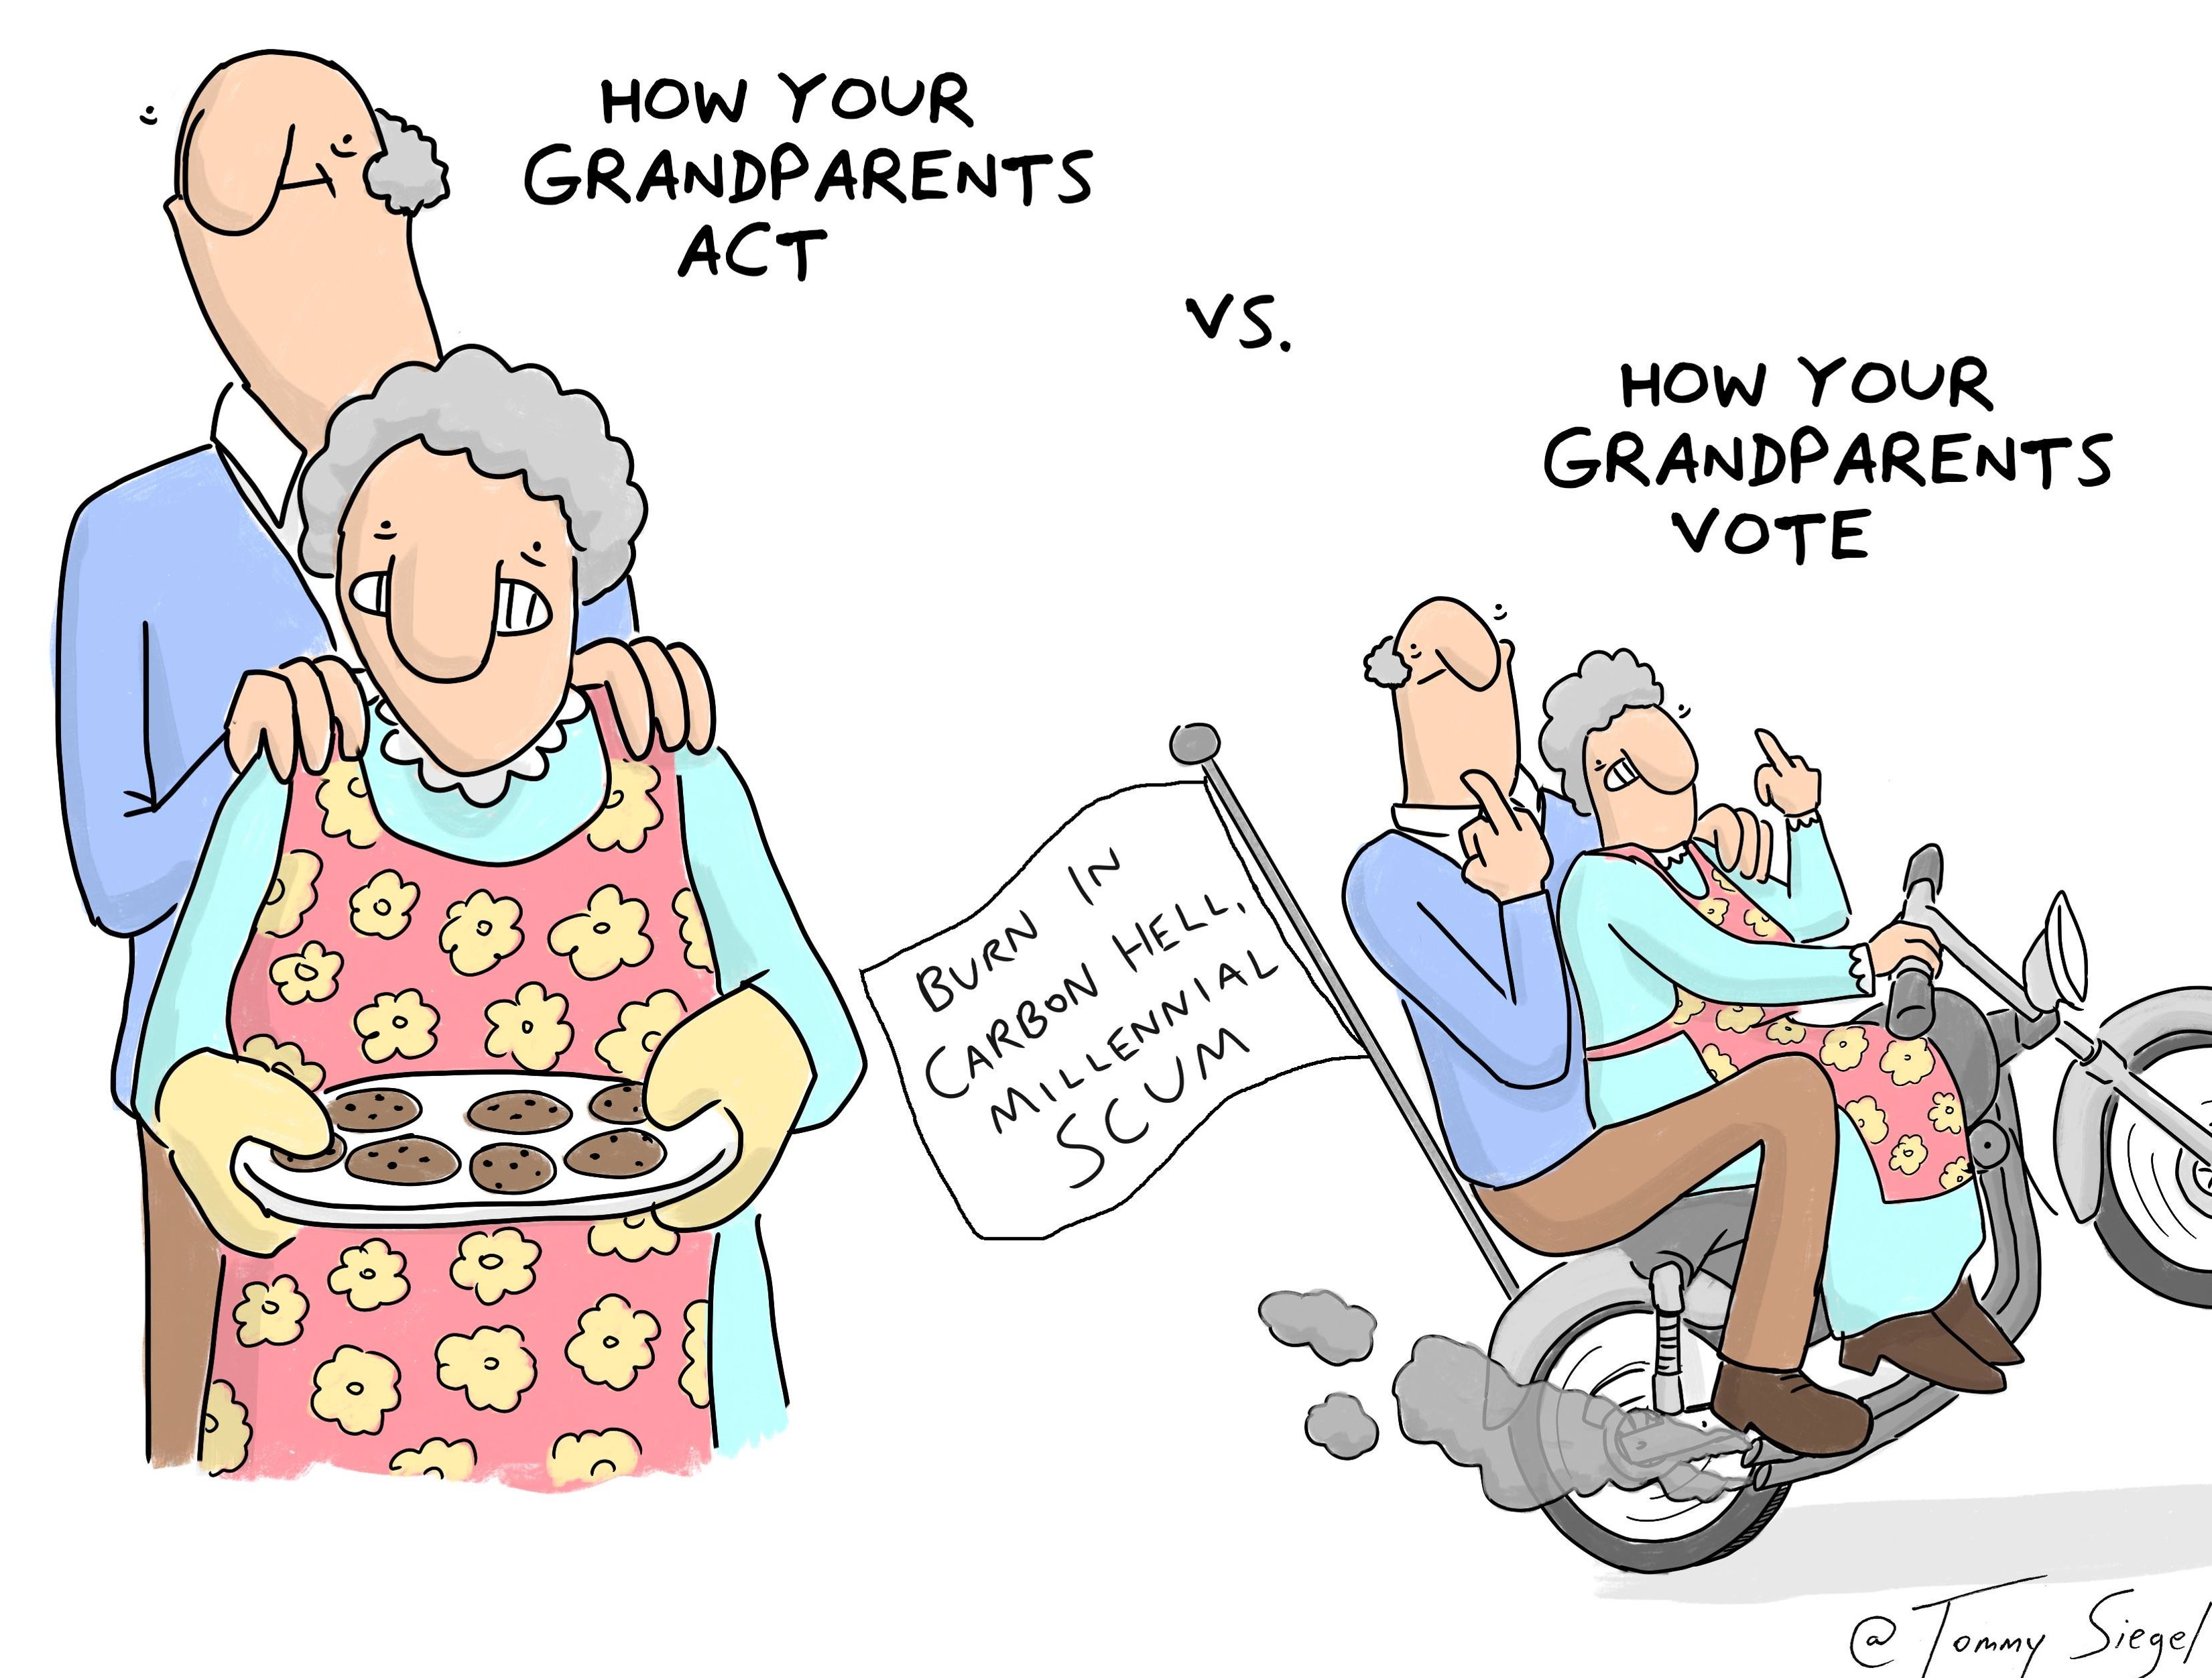 HOW YOUR
GRANDPARENTS
ACT
VS.
HOW YOUR
GRANDPARENTS
VOTE
BURN IN
CARBON HELL,
MILLENNIAL
SCUM
@TOMMY SIEGEL